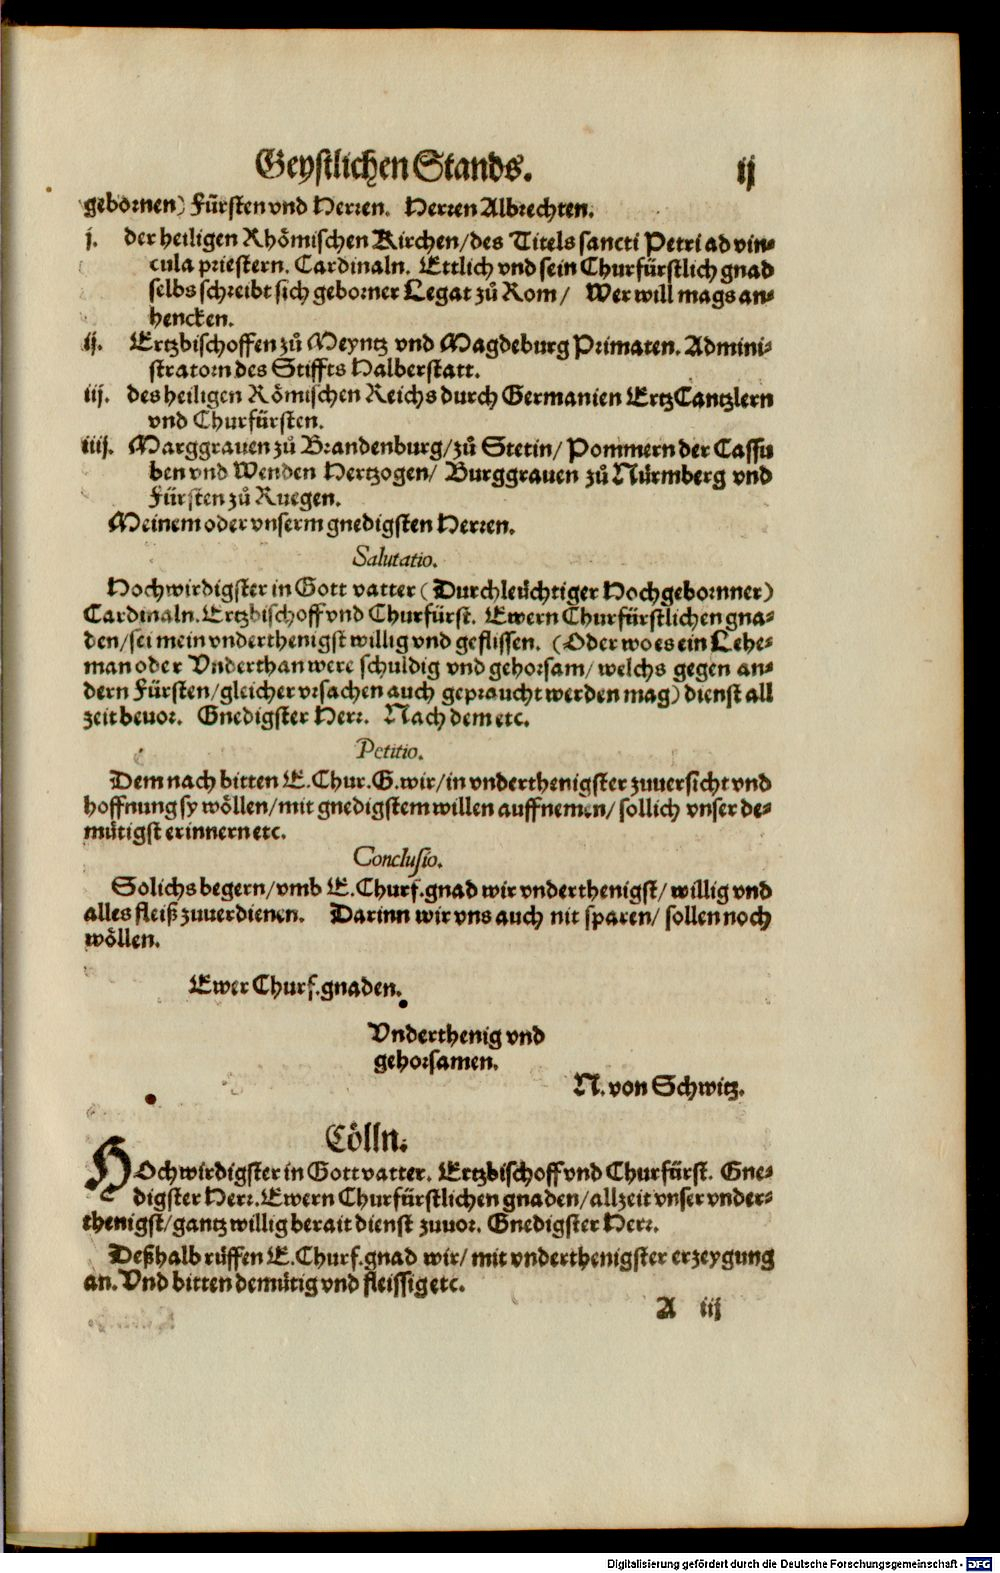 Geystlichen Stands. ij
gebornen) Fürsten vnd Herren. Herren Albrechten.
j. der heiligen Rhömischen Kirchen/des Titels sancti Petri ad vin⸗
cula priestern. Cardinaln. Ettlich vnd sein Churfürstlich gnad
selbs schreibt sich geborner Legat zů Rom/ Wer will mags an⸗
hencken.
ij. Ertzbischoffen zů Meyntz vnd Magdeburg Primaten. Admini⸗
stratorn des Stiffts Halberstatt.
iij. des heiligen Römischen Reichs durch Germanien ErtzCantzlern
vnd Churfürsten.
iiij. Marggrauen zů Brandenburg/zů Stetin/Pommern der Cassu
ben vnd Wenden Hertzogen/ Burggrauen zů Nürmberg vnd
Fürsten zů Ruegen.
Meinem oder vnserm gnedigsten Herren.
Salutatio.
Hochwirdigster in Gott vatter (Durchleüchtiger Hochgebornner)
Cardinaln. Ertzbischoff vnd Churfürst. Ewern Churfürstlichen gna⸗
den/sei mein vnderthenigst willig vnd geflissen. (Oder wo es ein Lehe⸗
man oder Vnderthan were schuldig vnd gehorsam/welchs gegen an⸗
dern Fürsten/gleicher vrsachen auch gepraucht werden mag) dienst all
zeit beuor. Gnedigster Herr. Nach dem etc.
Petitio.
Dem nach bitten E.Chur.G.wir/in vnderthenigster zuuersicht vnd
hoffnung sy wöllen/mit gnedigstem willen auffnemen/sollich vnser de⸗
mütigst erinnern etc.
Conclusio.
Solichs begern/vmb E.Churf.gnad wir vnderthenigst/willig vnd
alles fleiß zuuerdienen. Darinn wir vns auch nit sparen/sollen noch
wöllen.
Ewer Churf.gnaden.
Vnderthenig vnd
gehorsamen.
N. von Schwitz.
Cölln.
HOchwirdigster in Gott vatter. Ertzbischoff vnd Churfürst. Gne⸗
digster Herr. Ewern Churfürstlichen gnaden/allzeit vnser vnder⸗
thenigst/gantz willig berait dienst zuuor. Gnedigster Herr.
Deßhalb rüffen E.Churf.gnad wir/mit vnderthenigster erzeygung
an. Vnd bitten demütig vnd fleissig etc.
A iij
Digitalisierung gefördert durch die Deutsche Forschungsgemeinschaft - DFG